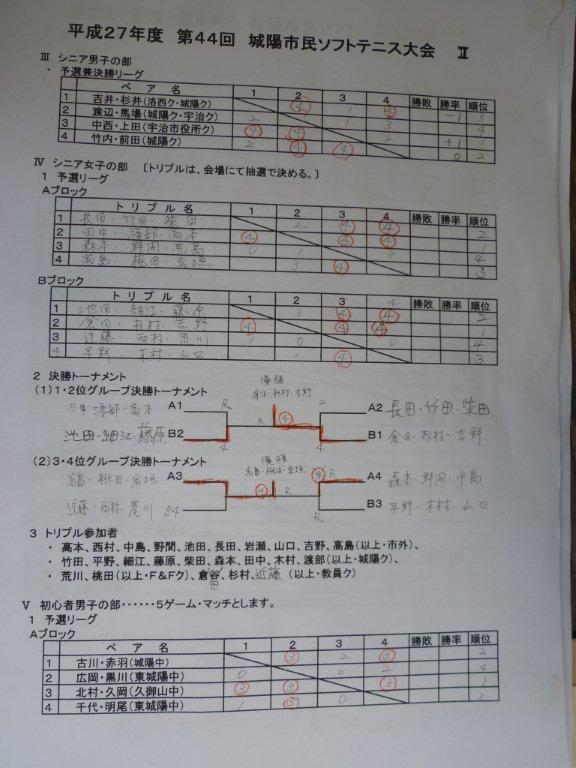 平成27年度 第44回 城陽市民ソフトテニス大会 Ⅱ
Ⅲ シニア男子の部
・ 予選兼決勝リーグ
ペア名 1 2 3 4 勝敗 勝率 順位
1 吉井・杉井(洛西ク・城陽ク) ④ 1 ④ 3
2 渡辺・馬場(城陽ク・宇治ク) 2 1 3 -1 4
3 中西・上田(宇治市役所ク) ④ ④ 2 +1 1
4 竹内・前田(城陽ク) 2 ④ ④ 0 2
Ⅳ シニア女子の部 〔トリプルは、会場にて抽選で決める。〕
1 予選リーグ
Aブロック
トリプル名 1 2 3 4 勝敗 勝率 順位
1 長田・竹田・柴田 2 ④ ④ 2
2 田中・渡部・高本 ④ ④ ④ 1
3 森本・野間・中島 0 1 4
4 高島・桃田・岩垣 3 ④ 3
Bブロック
トリプル名 1 2 3 4 勝敗 勝率 順位
1 池田・細江・藤原 3 ④ ④ 2
2 倉田・杉村・吉野 ④ ④ ④ 1
3 近藤・西村・荒川 0 0 4
4 平野・木村・山口 1 ④ 3
2 決勝トーナメント
(1)1・2位グループ決勝トーナメント
優勝
倉田・杉村・吉野
田中・渡部・高本 A1 R ④ 2 A2 長田・竹田・柴田
R
池田・細江・藤原 B2 4 4 B1 倉田・杉村・吉野
(2)3・4位グループ決勝トーナメント
優勝
高島・桃田・岩垣
高島・桃田・岩垣 A3 ④ R ④ R A4 森本・野間・中島
近藤・西村・荒川 B4 R B3 平野・木村・山口
3 トリプル参加者
・ 高本、西村、中島、野間、池田、長田、岩瀬、山口、吉野、高島(以上・市外)、
・ 竹田、平野、細江、藤原、柴田、森本、田中、木村、渡部(以上・城陽ク)、
・ 荒川、桃田(以上・F&Fク)、倉谷、杉村、近藤 (以上・教員ク)
田
Ⅴ 初心者男子の部‥‥‥5ゲーム・マッチとします。
1 予選リーグ
Aブロック
ペア名 1 2 3 4 勝敗 勝率 順位
1 古川・赤羽(城陽中) ③ 2 ③ 2
2 広岡・黒川(東城陽中) 0 0 2 4
3 北村・久岡(久御山中) ③ ③ ③ 1
4 千代・明尾(東城陽中) 1 ③ 0 3